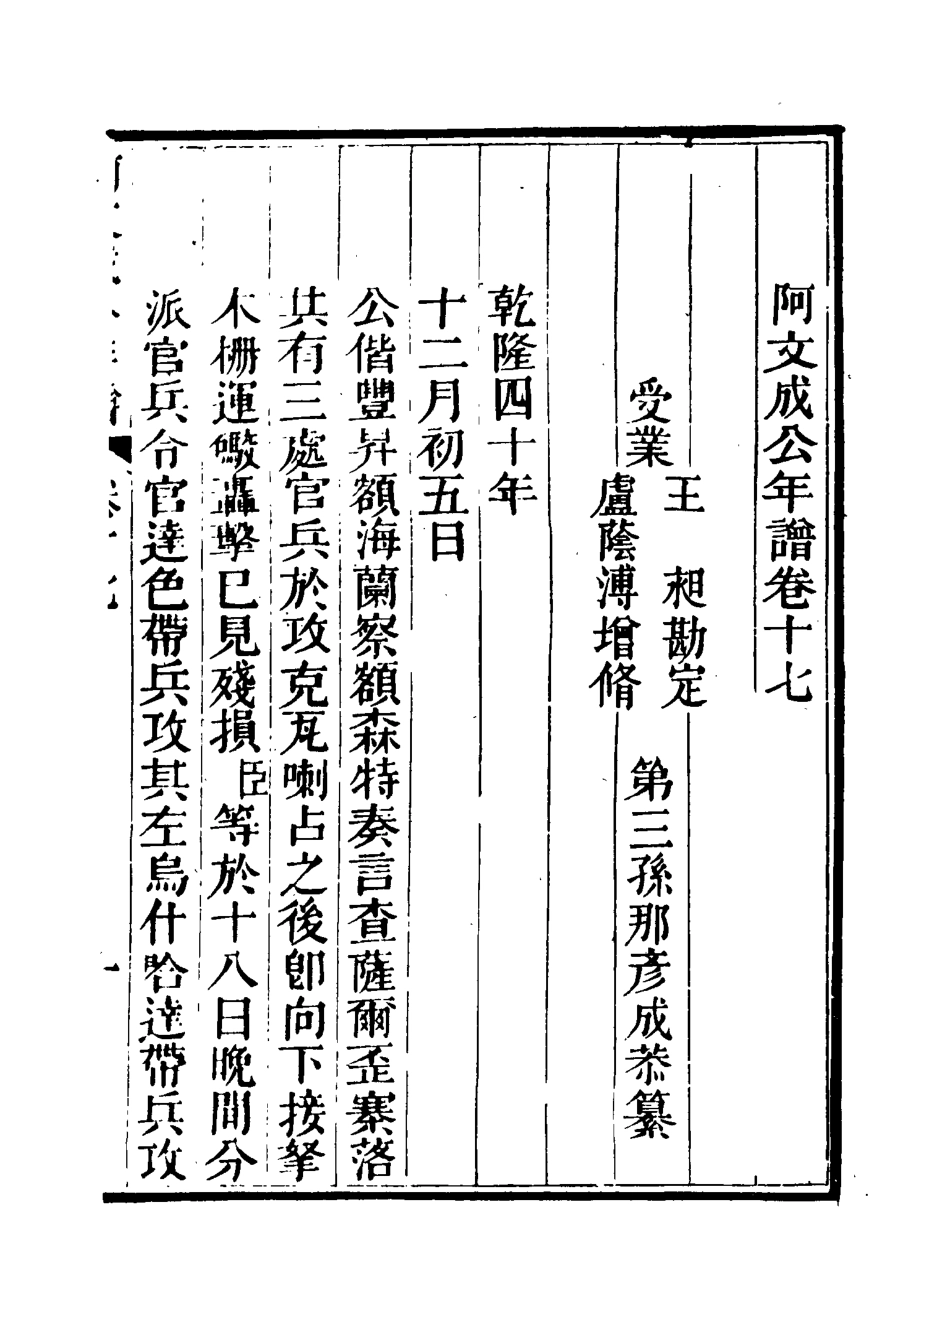 阿文成公年譜卷十七
受業
王　昶勘定
盧蔭溥增脩
第三孫那彥成恭纂
乾隆四十年
十二月初五日
公偕豐昇額海蘭察額森特奏言查薩爾歪寨落
共有三處官兵於攻克瓦喇占之後卽向下接拏
木柵運礮轟擊已見殘損臣等於十八日晚間分
派官兵令官達色帶兵攻其左烏什哈達帶兵攻